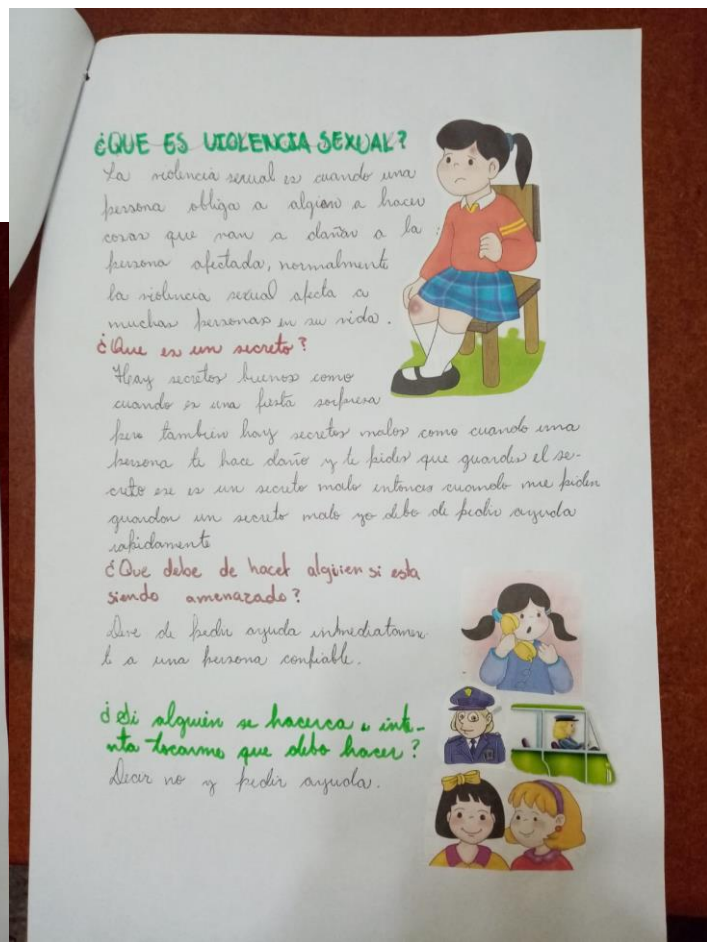 ¿QUE ES VIOLENCIA SEXUAL?
La violencia sexual es cuando una
persona obliga a algien a hacer
cosas que van a dañar a la
persona afectada, normalmente
la violencia sexual afecta a
muchas personas en su vida.
¿Que es un secreto?
Hay secretos buenos como
cuando es una fiesta sorpresa
pero tambien hay secretos malos como cuando una
persona te hace daño y te pides que guardes el se-
creto ese es un secreto malo entonces cuando me piden
guardar un secreto malo yo debo de pedir ayuda
rapidamente
¿Que debe de hacer algüien si esta
siendo amenazado?
Deve de pedir ayuda inmediatamen-
te a una persona confiable.
¿Si alguién se hacerca e inte-
nta tocarme que debo hacer?
Decir no y pedir ayuda.